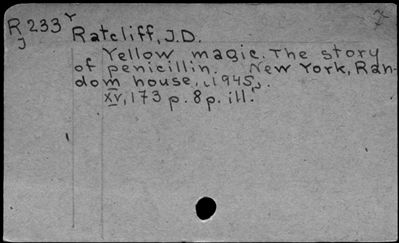 R 233 Y
J
Ratcliff, J.D.
Yellow magic. The story
of penicillin. New York, Ran-
dom house, [1945].
XV, 173 p. 8 p. ill.